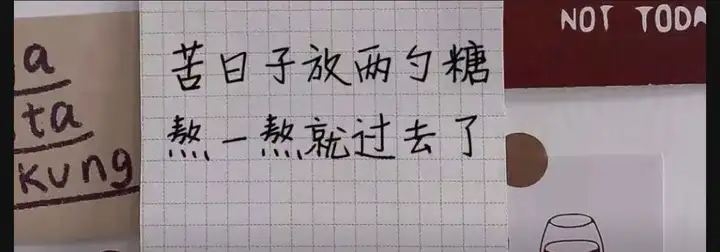 a
ta
kung
苦日子放两勺糖
熬一熬就过去了
NOT TODA